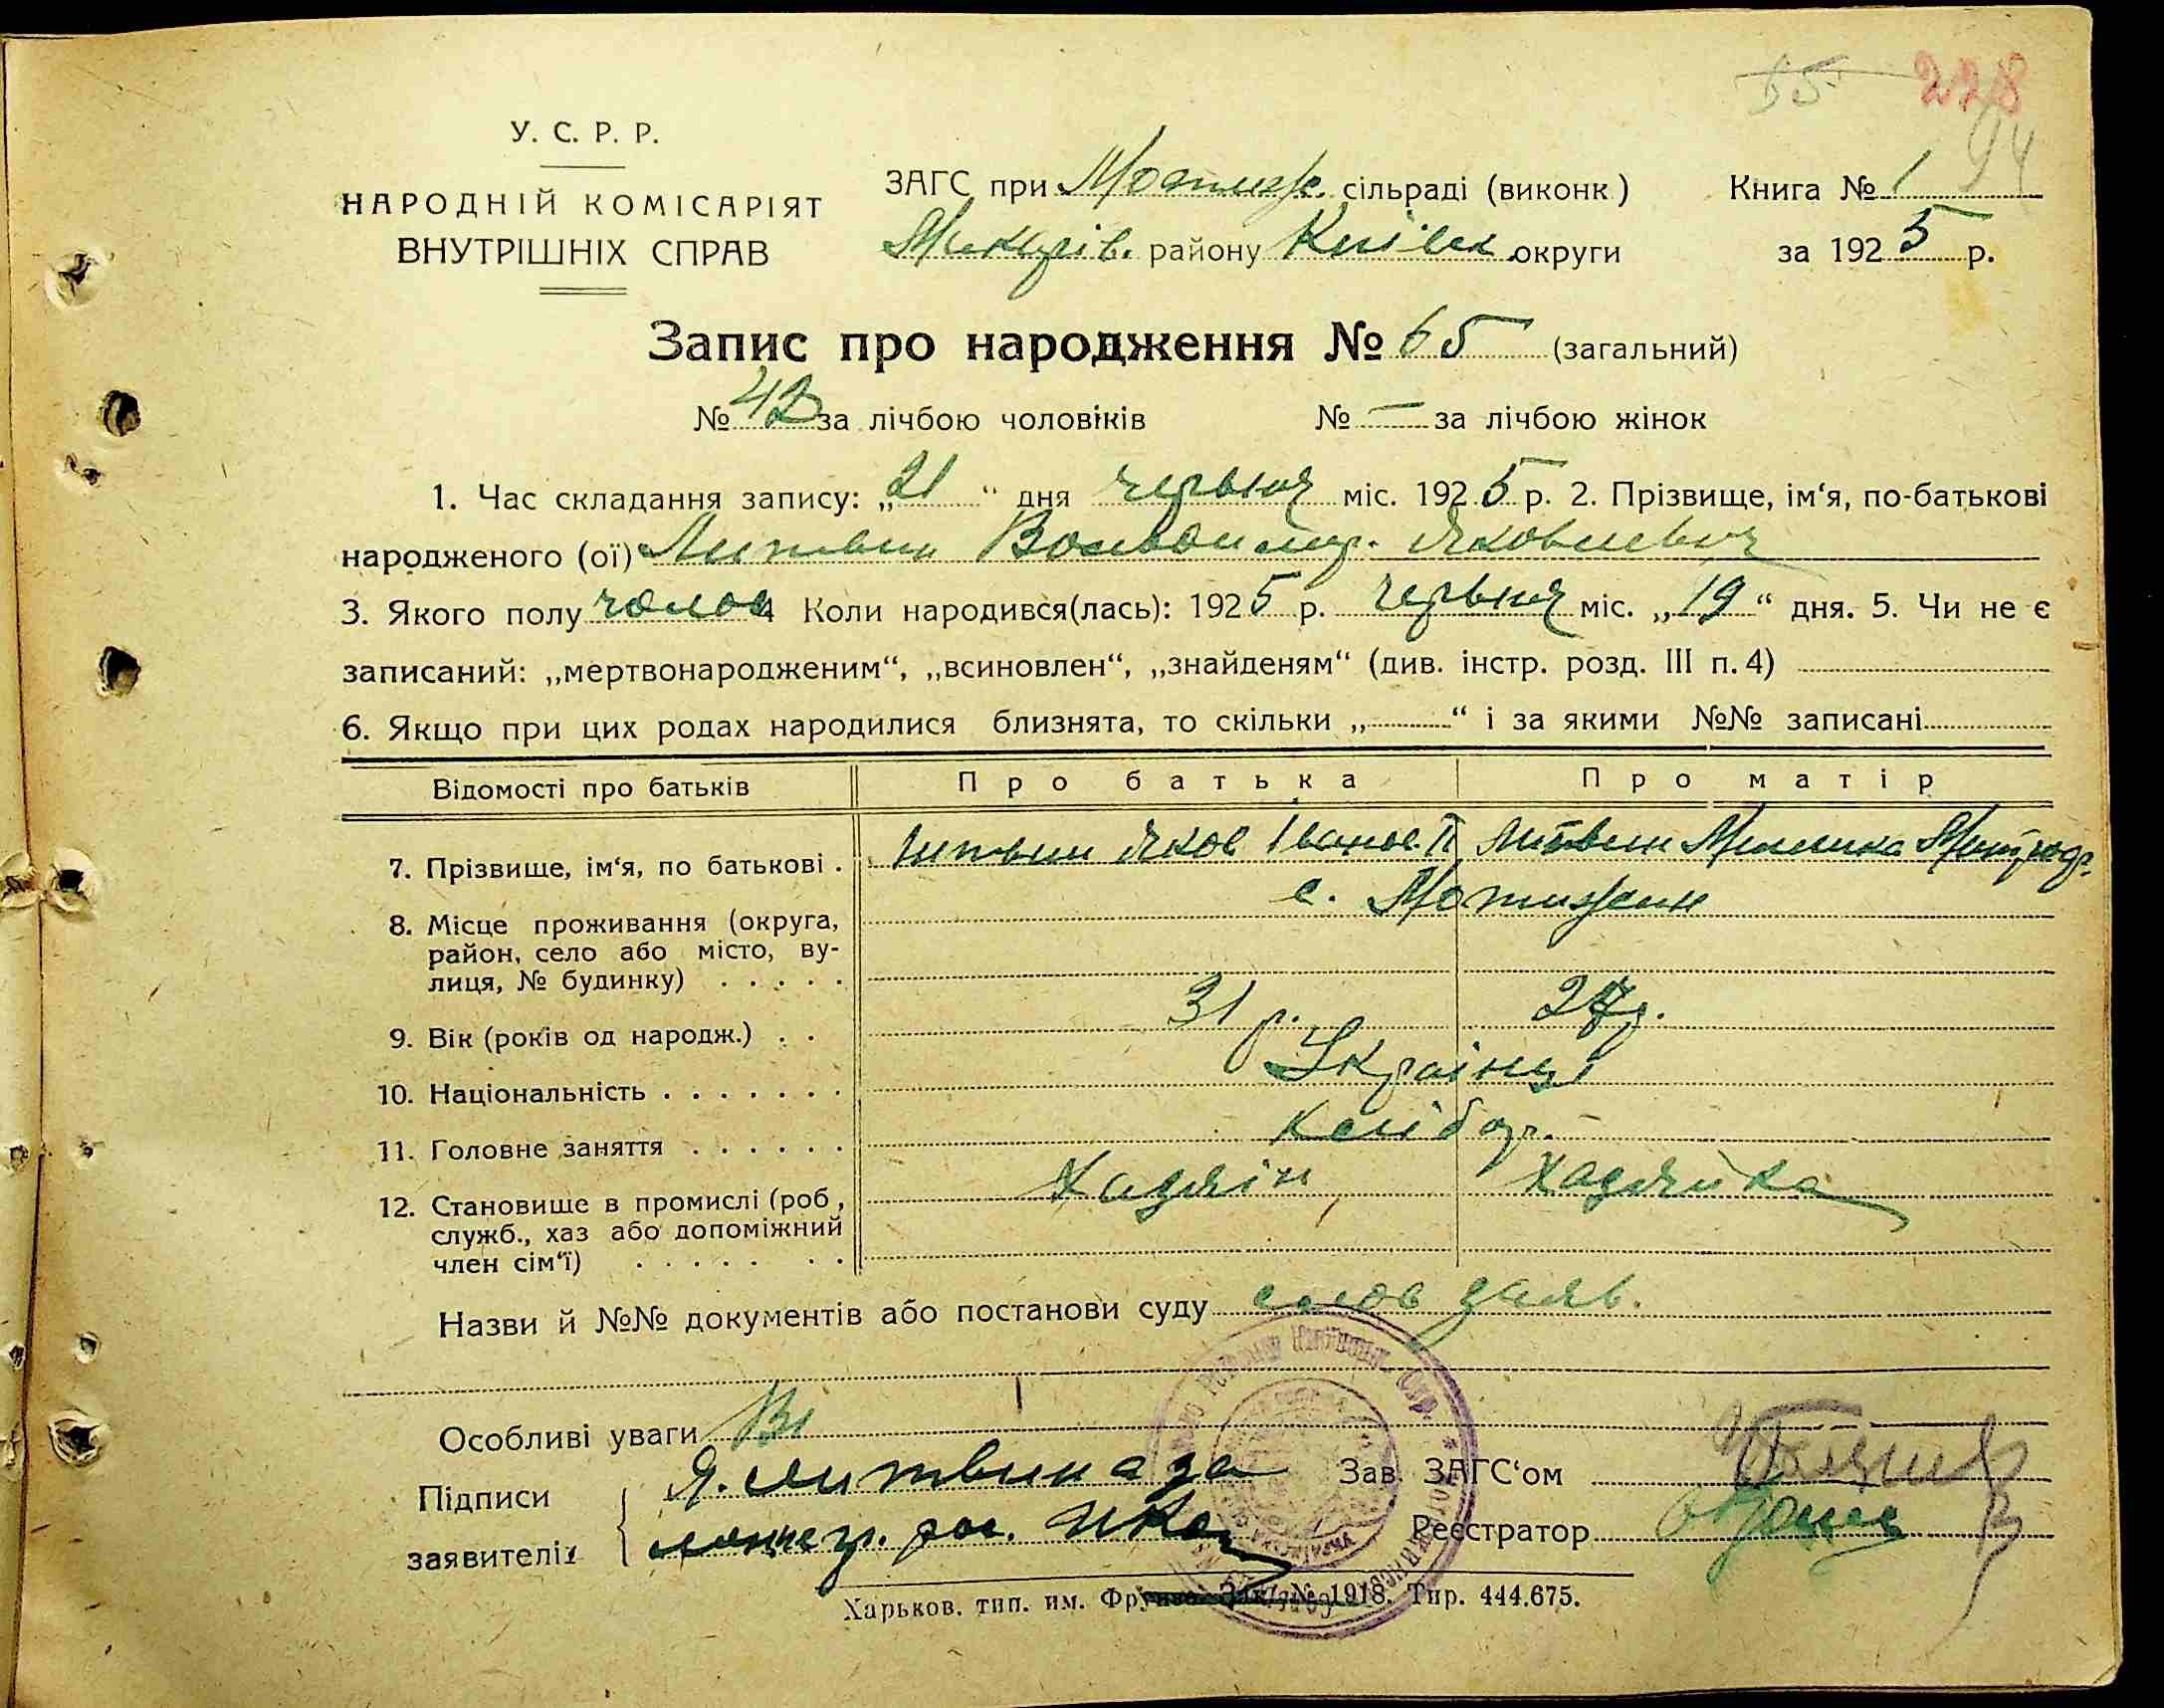 55 228
94
У. С. Р. Р.
НАРОДНІЙ КОМІСАРІЯТ
ВНУТРІШНІХ СПРАВ
ЗАГС при Мотиж. сільраді (виконк.) Книга № 1
Макарів. району Київськ округи за 1925 р.
Запис про народження № 65 (загальний)
№ 42 за лічбою чоловіків № — за лічбою жінок
1. Час складання запису: „21“ дня червня міс. 1925 р. 2. Прізвище, ім‘я, по-батькові
народженого (ої) Литвин Володимир. Яковлевич
3. Якого полу чолов 4 Коли народився(лась): 1925 р. червня міс. „19“ дня. 5. Чи не є
записаний: „мертвонародженим“, „всиновлен“, „знайденям“ (див. інстр. розд. III п. 4)
6. Якщо при цих родах народилися близнята, то скільки „ “ і за якими №№ записані
Відомості про батьків Про батька Про матір
7. Прізвище, ім‘я, по батькові . Литвин Яков Іванов. Литвин
8. Місце проживання (округа, район, село або місто, ву-лиця, № будинку) с. Мотижин
9. Вік (років од народж.) 31 р. 27р.
10. Національність Українці
11. Головне заняття хлібор.
12. Становище в промислі (роб, служб., хаз або допоміжний член сім‘ї) Хазяїн Хазяйка
Назви й №№ документів або постанови суду слов заяв.
Особливі уваги
Підписи Я. Литвин а за Зав. ЗАГС‘ом
заявителів Реєстратор
Харьков. тип. им. Фрунзе. Зак. № 1918. Тир. 444.675.